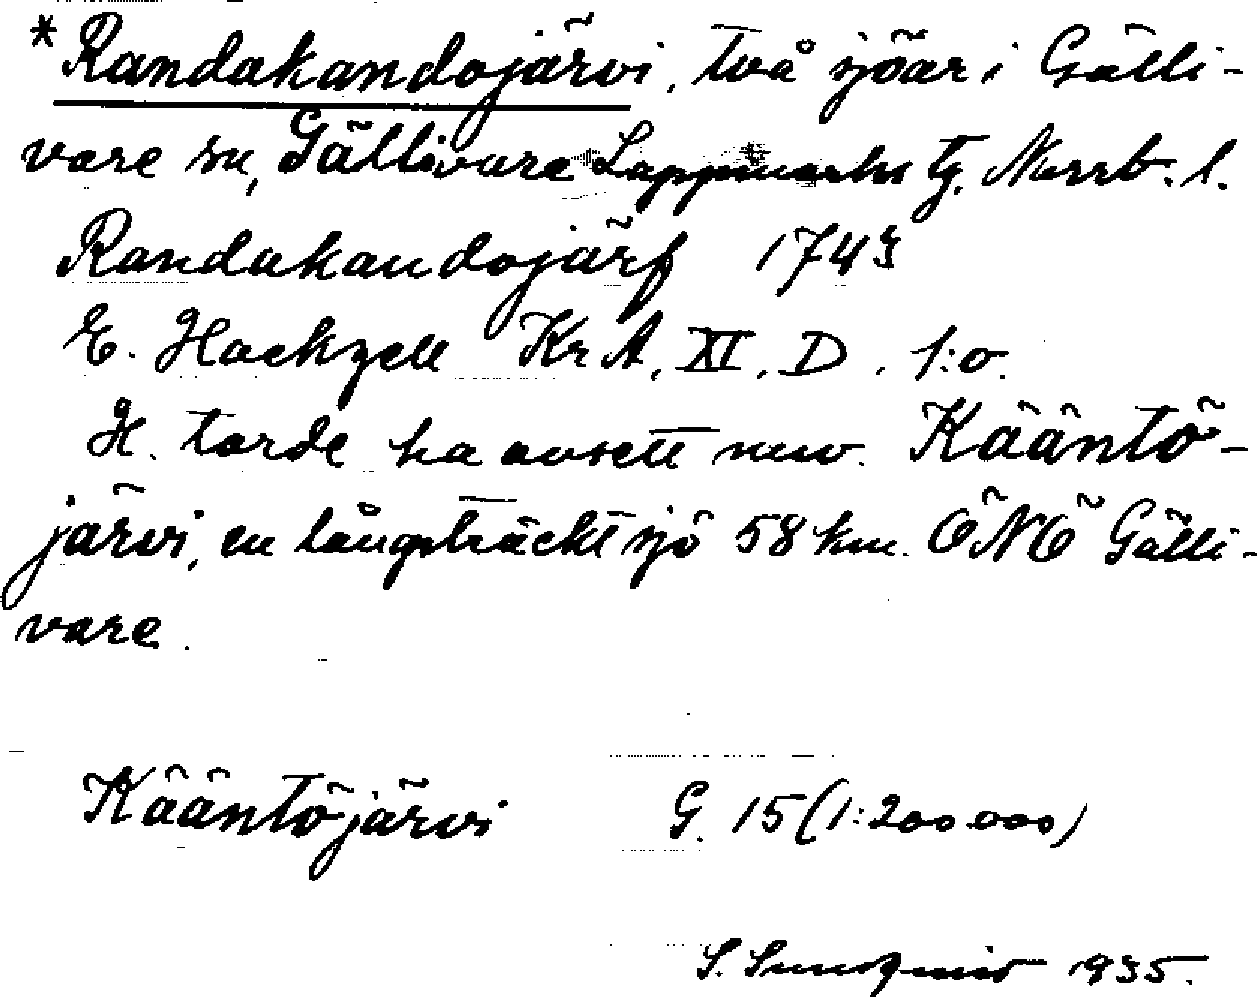 *Randakandojärvi, två sjöar i Gälli-
vare sn, Gällivare Lappmarks tg. Norrb. l.
Randakandojärf 1743
E. Hackzell Kr A. XI. D. 1:o.
H. torde ha avsett nuv. Kääntö-
järvi, en långsträckt sjö 58 km. ÖNÖ Gälli-
vare.
Kääntöjärvi G. 15 (1:200.000)
S. Sundqvist 1935.